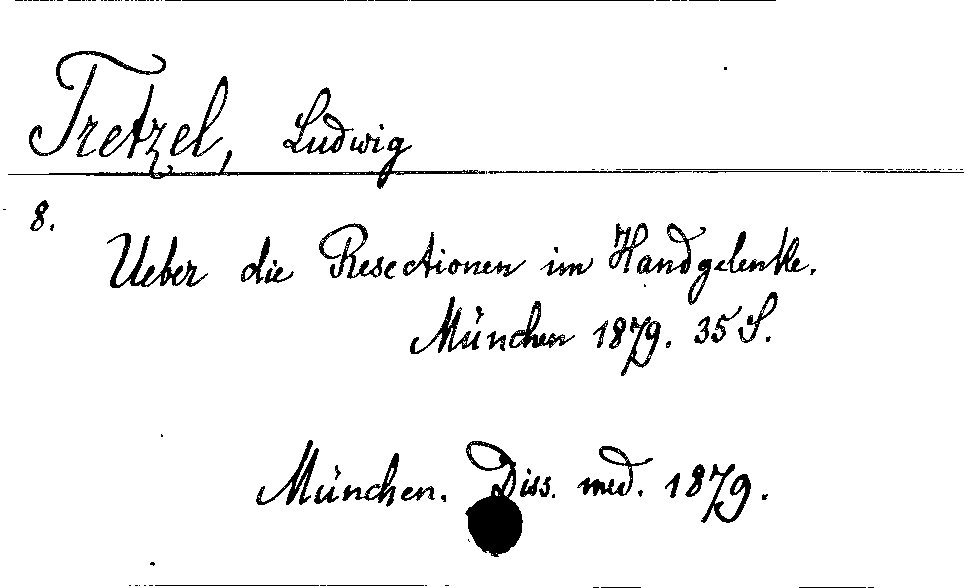 Tretzel, Ludwig
8.
Ueber die Resectionen im Handgelenke.
München 1879. 35 S.
München. Diss. med. 1879.